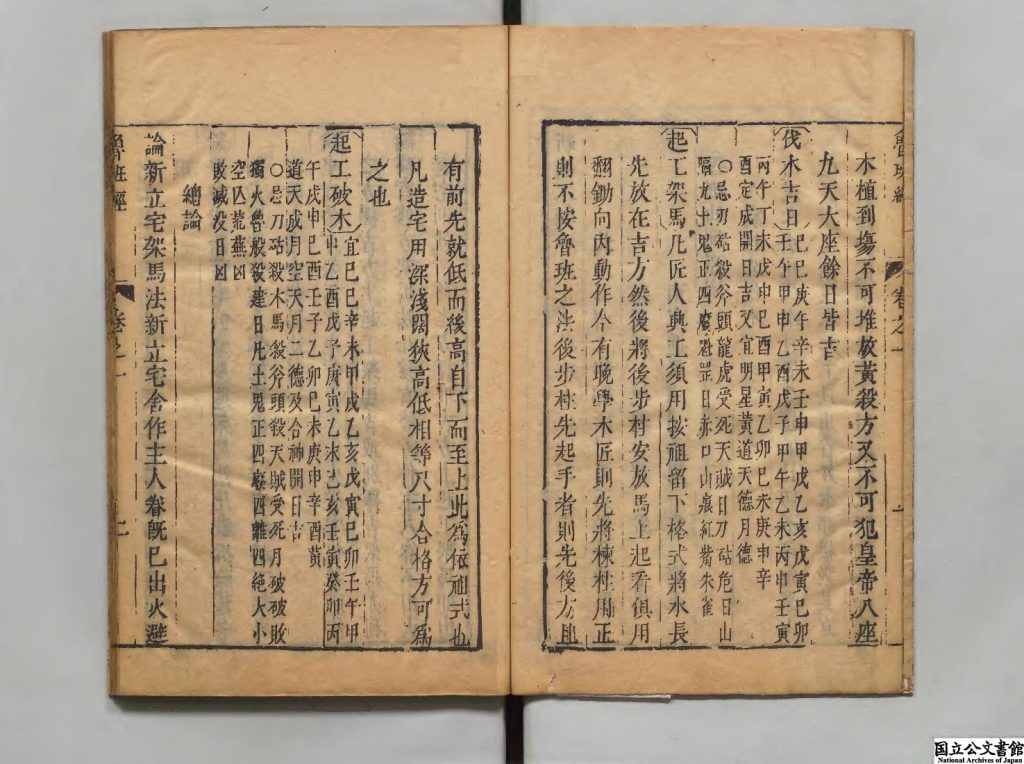 魯班經 卷之一 一
木植到塲不可堆放黃殺方又不可犯皇帝八座
九天大座餘日皆吉
伐木吉日 己巳庚午辛未壬申甲戌乙亥戊寅己卯
壬午甲申乙酉戊子甲午乙未丙申壬寅
丙午丁未戊申己酉甲寅乙卯己未庚申辛
酉定成開日吉又宜明星黃道天德月德
○忌刀砧殺斧頭龍虎受死天賊日刀砧危日山
隔九土鬼正四廢魁罡日赤口山痕紅觜朱雀
起工架馬 凡匠人興工須用按祖留下格式將水長
先放在吉方然後將後步柱安放馬上起看俱用
翻鋤向內動作今有晚學木匠則先將棟柱用正
則不按魯班之法後步柱先起手者則先後方且
有前先就低而後高自下而至上此爲依祖式也
凡造宅用深淺闊狹高低相等尺寸合格方可爲
之也
起工破木 宜己巳辛未甲戌乙亥戊寅己卯壬午甲
申乙酉戊子庚寅乙未己亥壬寅癸卯丙
午戊申己酉壬子乙卯己未庚申辛酉黃
道天成月空天月二德及合神開日吉
○忌刀砧殺木馬殺斧頭殺天賊受死月破破敗
獨火魯般殺建日凡土鬼正四廢四離四絶大小
空亾荒蕪凶
敗滅沒日凶
總論
論新立宅架馬法新立宅舍作主人眷旣已出火避
魯班經 卷之一 二
国立公文書館
National Archives of Japan